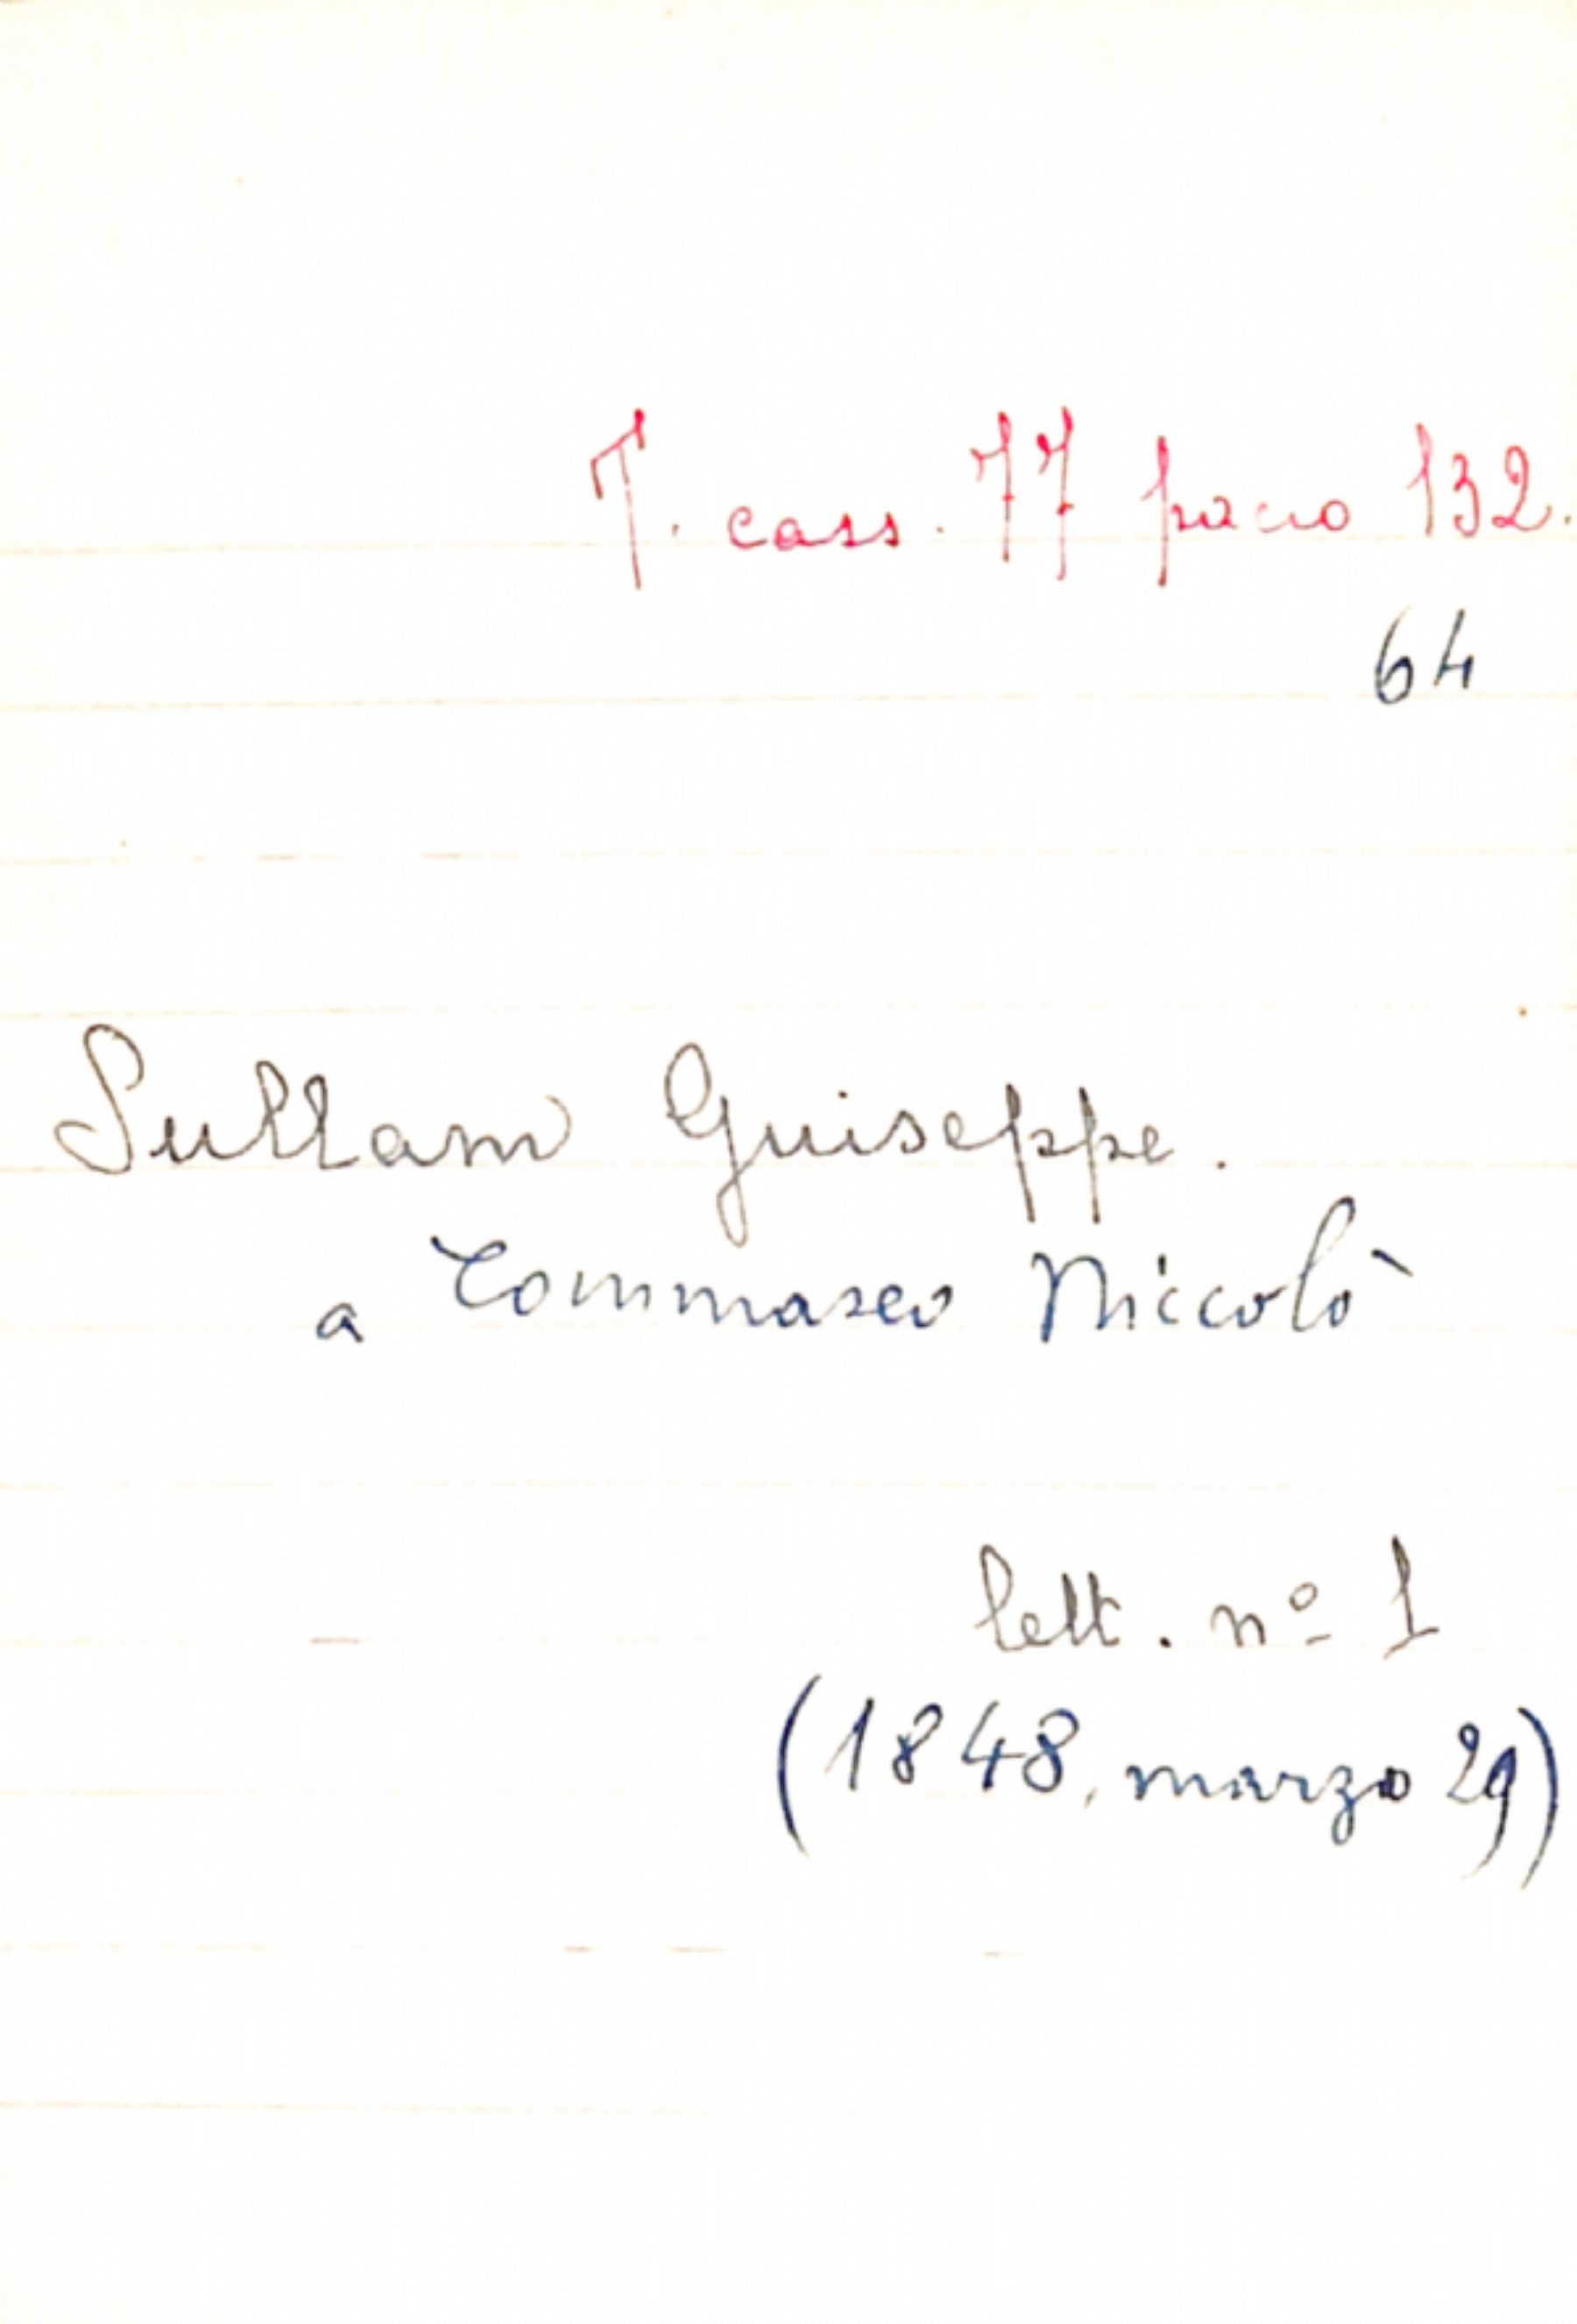 T. cass. 77 pacco 132.
64
Sullam Guiseppe.
a Tommaseo Niccolò
lett. nº 1
(1848, marzo 29)